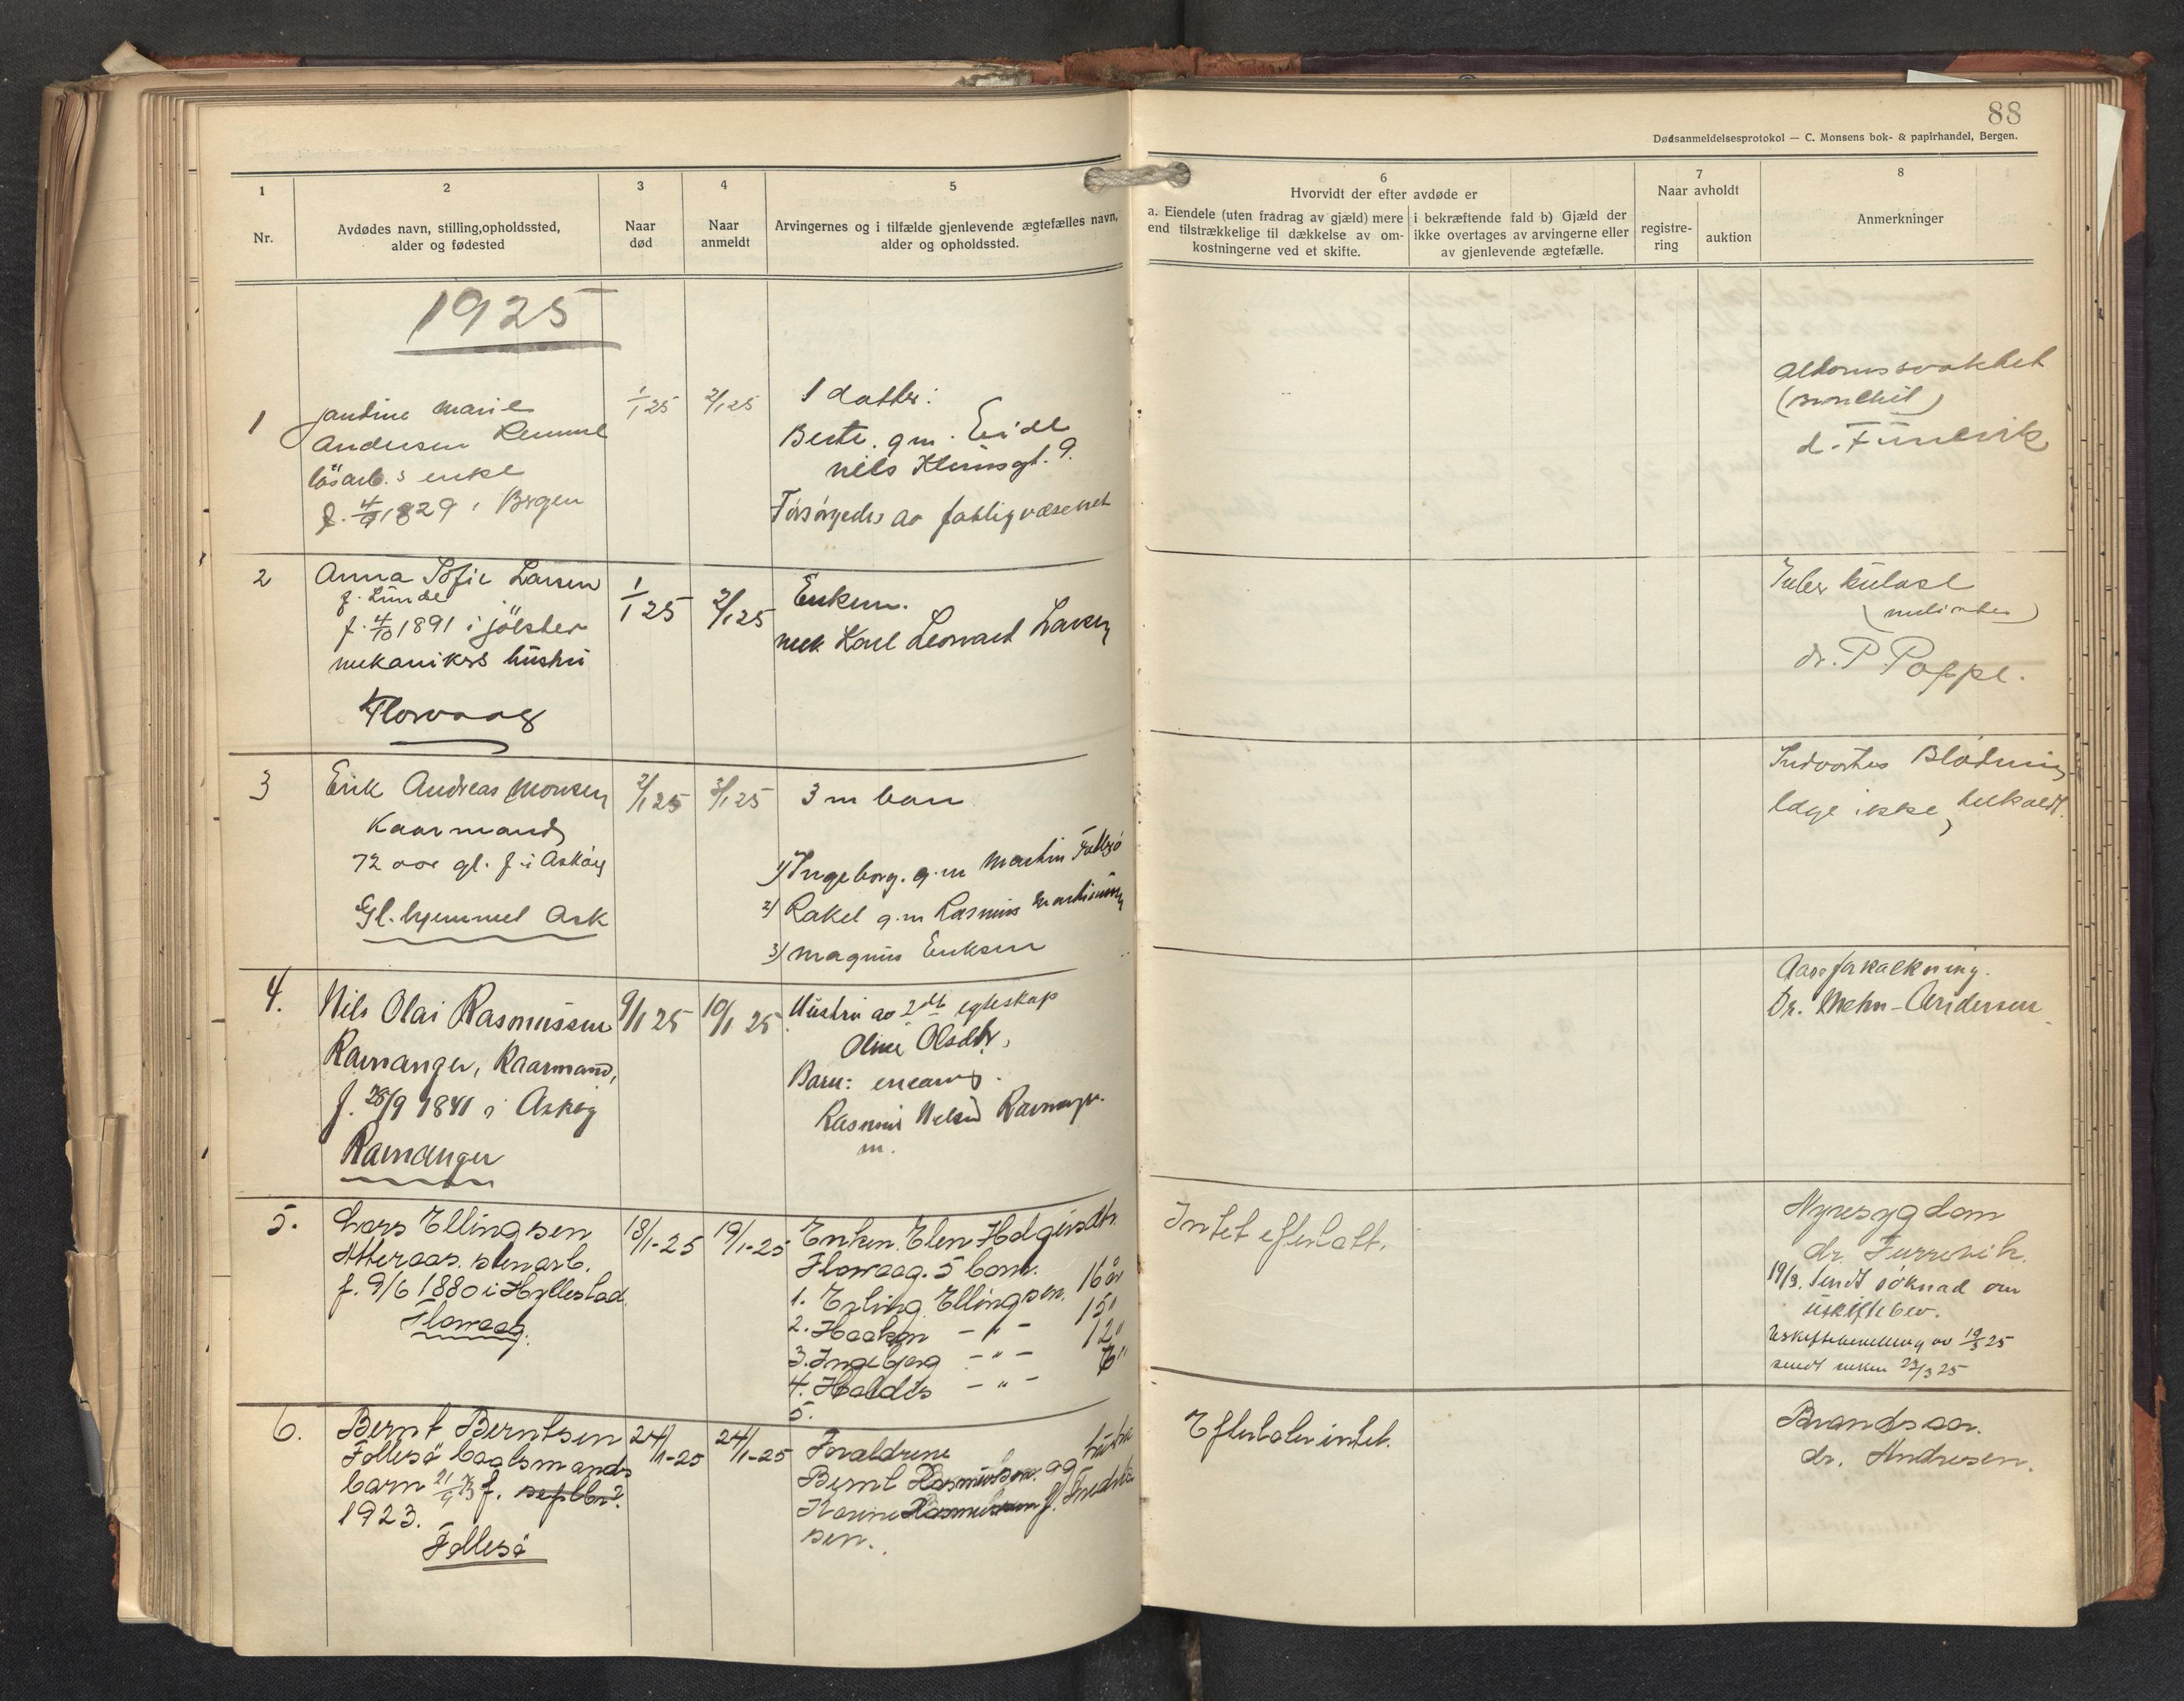 88
Dødsanmeldelsesprotokol — C. Monsens bok- & papirhandel, Bergen.
1
Nr.
2
Avdødes navn, stilling, opholdssted,
alder og fødested
3
Naar
død
4
Naar
anmeldt
5
Arvingernes og i tilfælde gjenlevende ægtefælles navn,
alder og opholdssted.
6
Hvorvidt der efter avdøde er
a. Eiendele (uten fradrag av gjæld) mere
end tilstrækkelige til dækkelse av om-
kostningerne ved et skifte.
i bekræftende fald b) Gjæld der
ikke overtages av arvingerne eller
av gjenlevende ægtefælle.
7
Naar avholdt
registre-
ring
auktion
8
Anmerkninger
1925
1
Jantine Marie
Andersen
løsarb.s enke
f. 4/9 1829 i Bergen
1/1 25
2/1 25
1 datter:
Berte. g.m. Eide
Nils Klimsgt. 9.
Forsørgedes av fattigvæsenet
Alderdomssvakhet
(Bronchit)
d. Furrevik
2
Anna Sofie Larsen
f. Lunde
f. 4/10 1891 i Jølster
mekanikers hustru
Florvaag
1/1 25
2/1 25
Enkem.
mek Karl Leonard Larsen
Tuberkulose
dr. P. Poppe.
3
Erik Andreas Monsen
Kaarmand
72 aar gl. f. i Askøy
Gl. hjemmet Ask
2/1 25
3/1 25
3 m barn
1) Ingeborg. g.m Martin Follesø
2) Rakel g.m Rasmus Martinussen
3) Magnus Eriksen
Indvortes Blødning
læge ikke tilkaldt.
4.
Nils Olai Rasmussen
Ramanger, Kaarmand,
f. 28/9 1841 i Askøy
Ramanger
9/1 25
10/1 25
Hustru av 2det egteskap
Oline Olsdtr,
Barn: enearving.
Rasmus Nilsen Ramanger.
m.
Aareforkalkning.
Dr. Mehn-Andersen
5.
Lars Ellingsen
Atteraas. stenarb.
f. 9/6 1880 i Hyllestad.
Florvaag.
18/1-25
19/1-25
Enken. Elen Helgesdtr.
Florvaag. 5 barn.
1. Erling Ellingsen. 16 år
2. Haakon — " — 15 "
3. Ingebjørg — " — 12 "
4. Haldis — " — 6 "
5.
Intet efterlatt.
Nyresygdom
dr. Furrevik.
19/3. Sendt søknad om
uskiftebev.
Uskiftebevilling av 19/3 25
sendt enken 23/3 25
6.
Bernt Berntsen
Follesø baatsmands
barn 21/9 23 f. septbr?
1923.
Follesø
24/1-25
24/1-25
Foraldrene
Bernt Rasmussen og hustru
Karine Rasmussen f. Fredrik
sen.
Efterlater intet.
Brandsaar.
dr. Andresen.